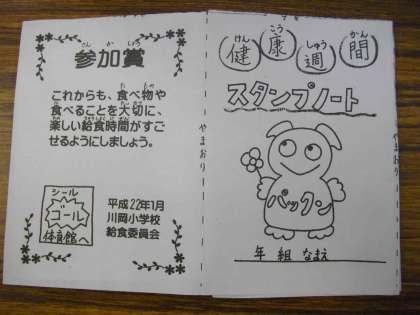 さんかしょう
参加賞
これからも、食べ物や
食べることを大切に、
楽しい給食時間がすご
せるようにしましょう。
シール
ゴール
体育館へ
平成22年1月
川岡小学校
給食委員会
やまおり
けん こう しゅう かん
健康週間
スタンプノート
パックン
年 組 なまえ